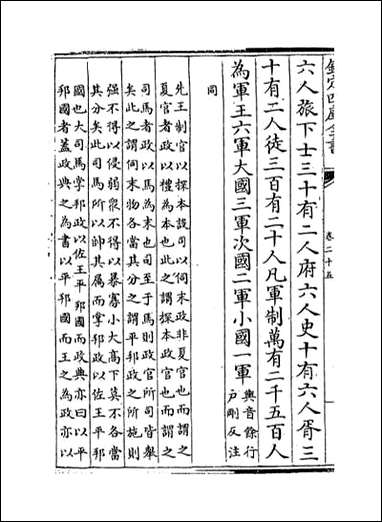 欽定四庫全書
卷二十五
六人旅下士三十有二人府六人史十有六人胥三
十有二人徒三百有二十人凡軍制萬有二千五百人
為軍王六軍大國三軍次國二軍小國一軍
輿音餘行
戶剛反注
同
先王制官以探本設司以伺末政非夏官也而謂之
夏官者政以禮為本也此之謂探本政官也而謂之
司馬者政以馬為末也司至于馬則政官所司皆舉
矣此之謂伺末物各當其分之謂平邦政之所施則
强不得以侵弱衆不得以暴寡小大高下莫不各當
其分矣此司馬所以帥其屬而掌邦政以佐王平邦
國也大司馬掌邦政以佐王平邦國而政典亦曰以平
邦國者蓋政典之為書以平邦國而王之為政亦以